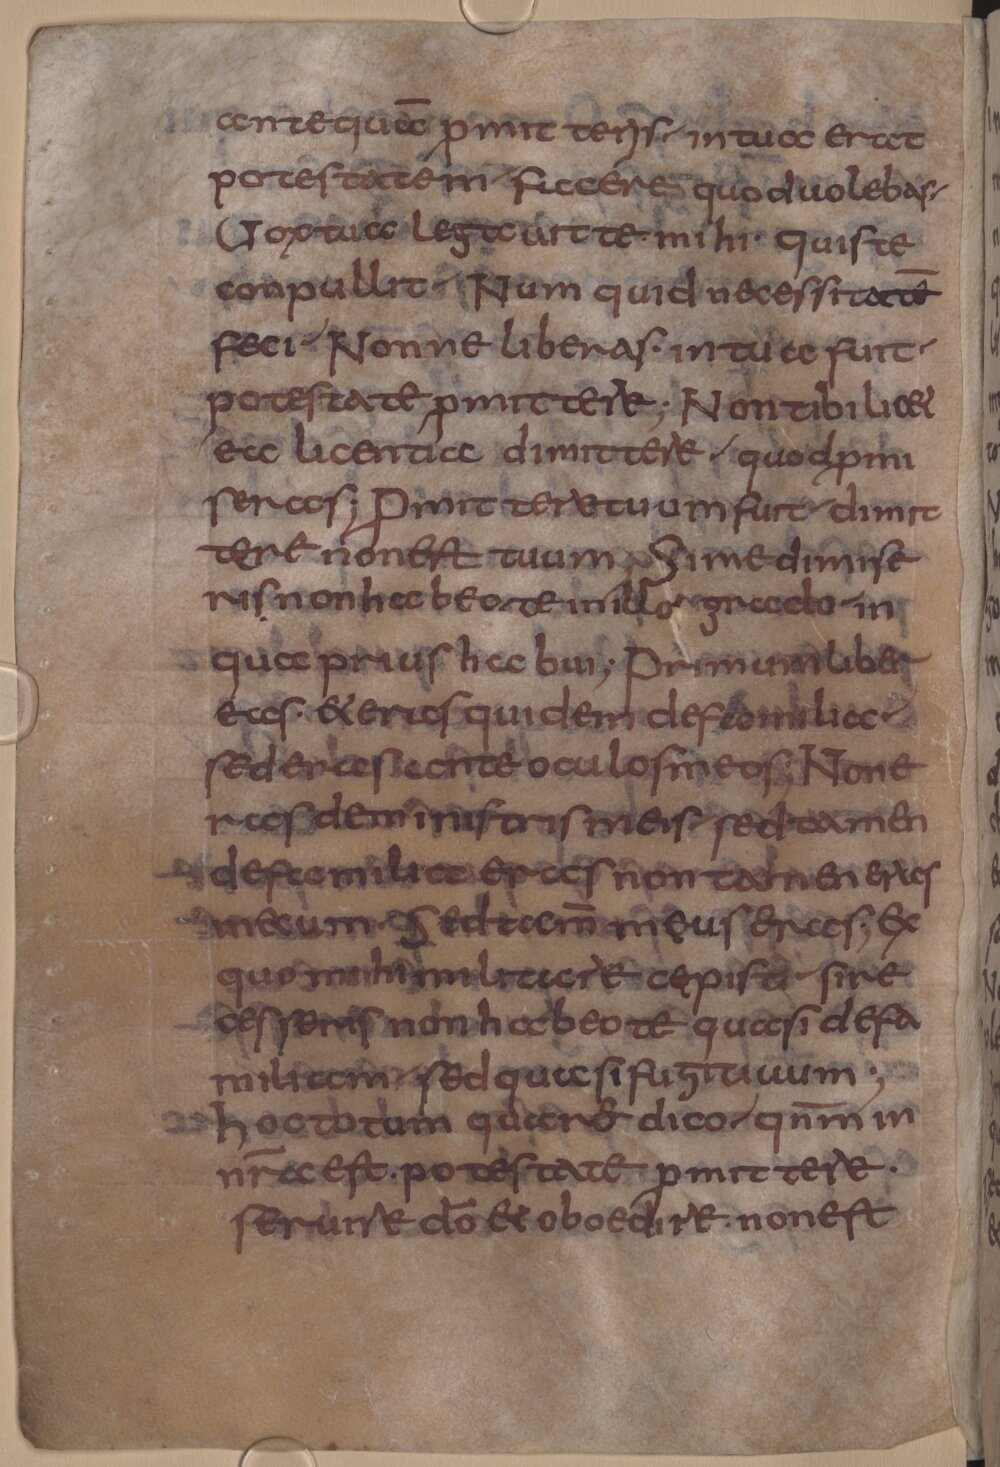 antequā ꝓmitteris. in tua erat
potestatem facere quod volebas.
Vox tua legavit te. mihi. quis te
conpullit. Num quid necessitatē
feci. Nonne liberas. in tua fuit.
potestatē ꝓmittere; Non tibi licet
ea licentia dimittere. quod ꝓmi
seras; Ꝓmittere tuum fuit. dimit
tere non est tuum. Si me dimise
ris. non habeo te in illo grado in
qua prius habui; Primum liber
eas. & eras quidem de familia.
sed eras ante oculos meos; Non e
ras de ministris meis. sed tamen
de familia eras non tamen eras
mecum. Sed tam̄ meus eras; Ex
quo mihi militare cępisti. si re
cesseris non habeo te quasi de fa
miliam. sed quasi fugitiuum;
hoc totum quare dico. qnm̄ in
nr̄a est. potestate ꝓmittere.
seruire dō & oboedire. non est